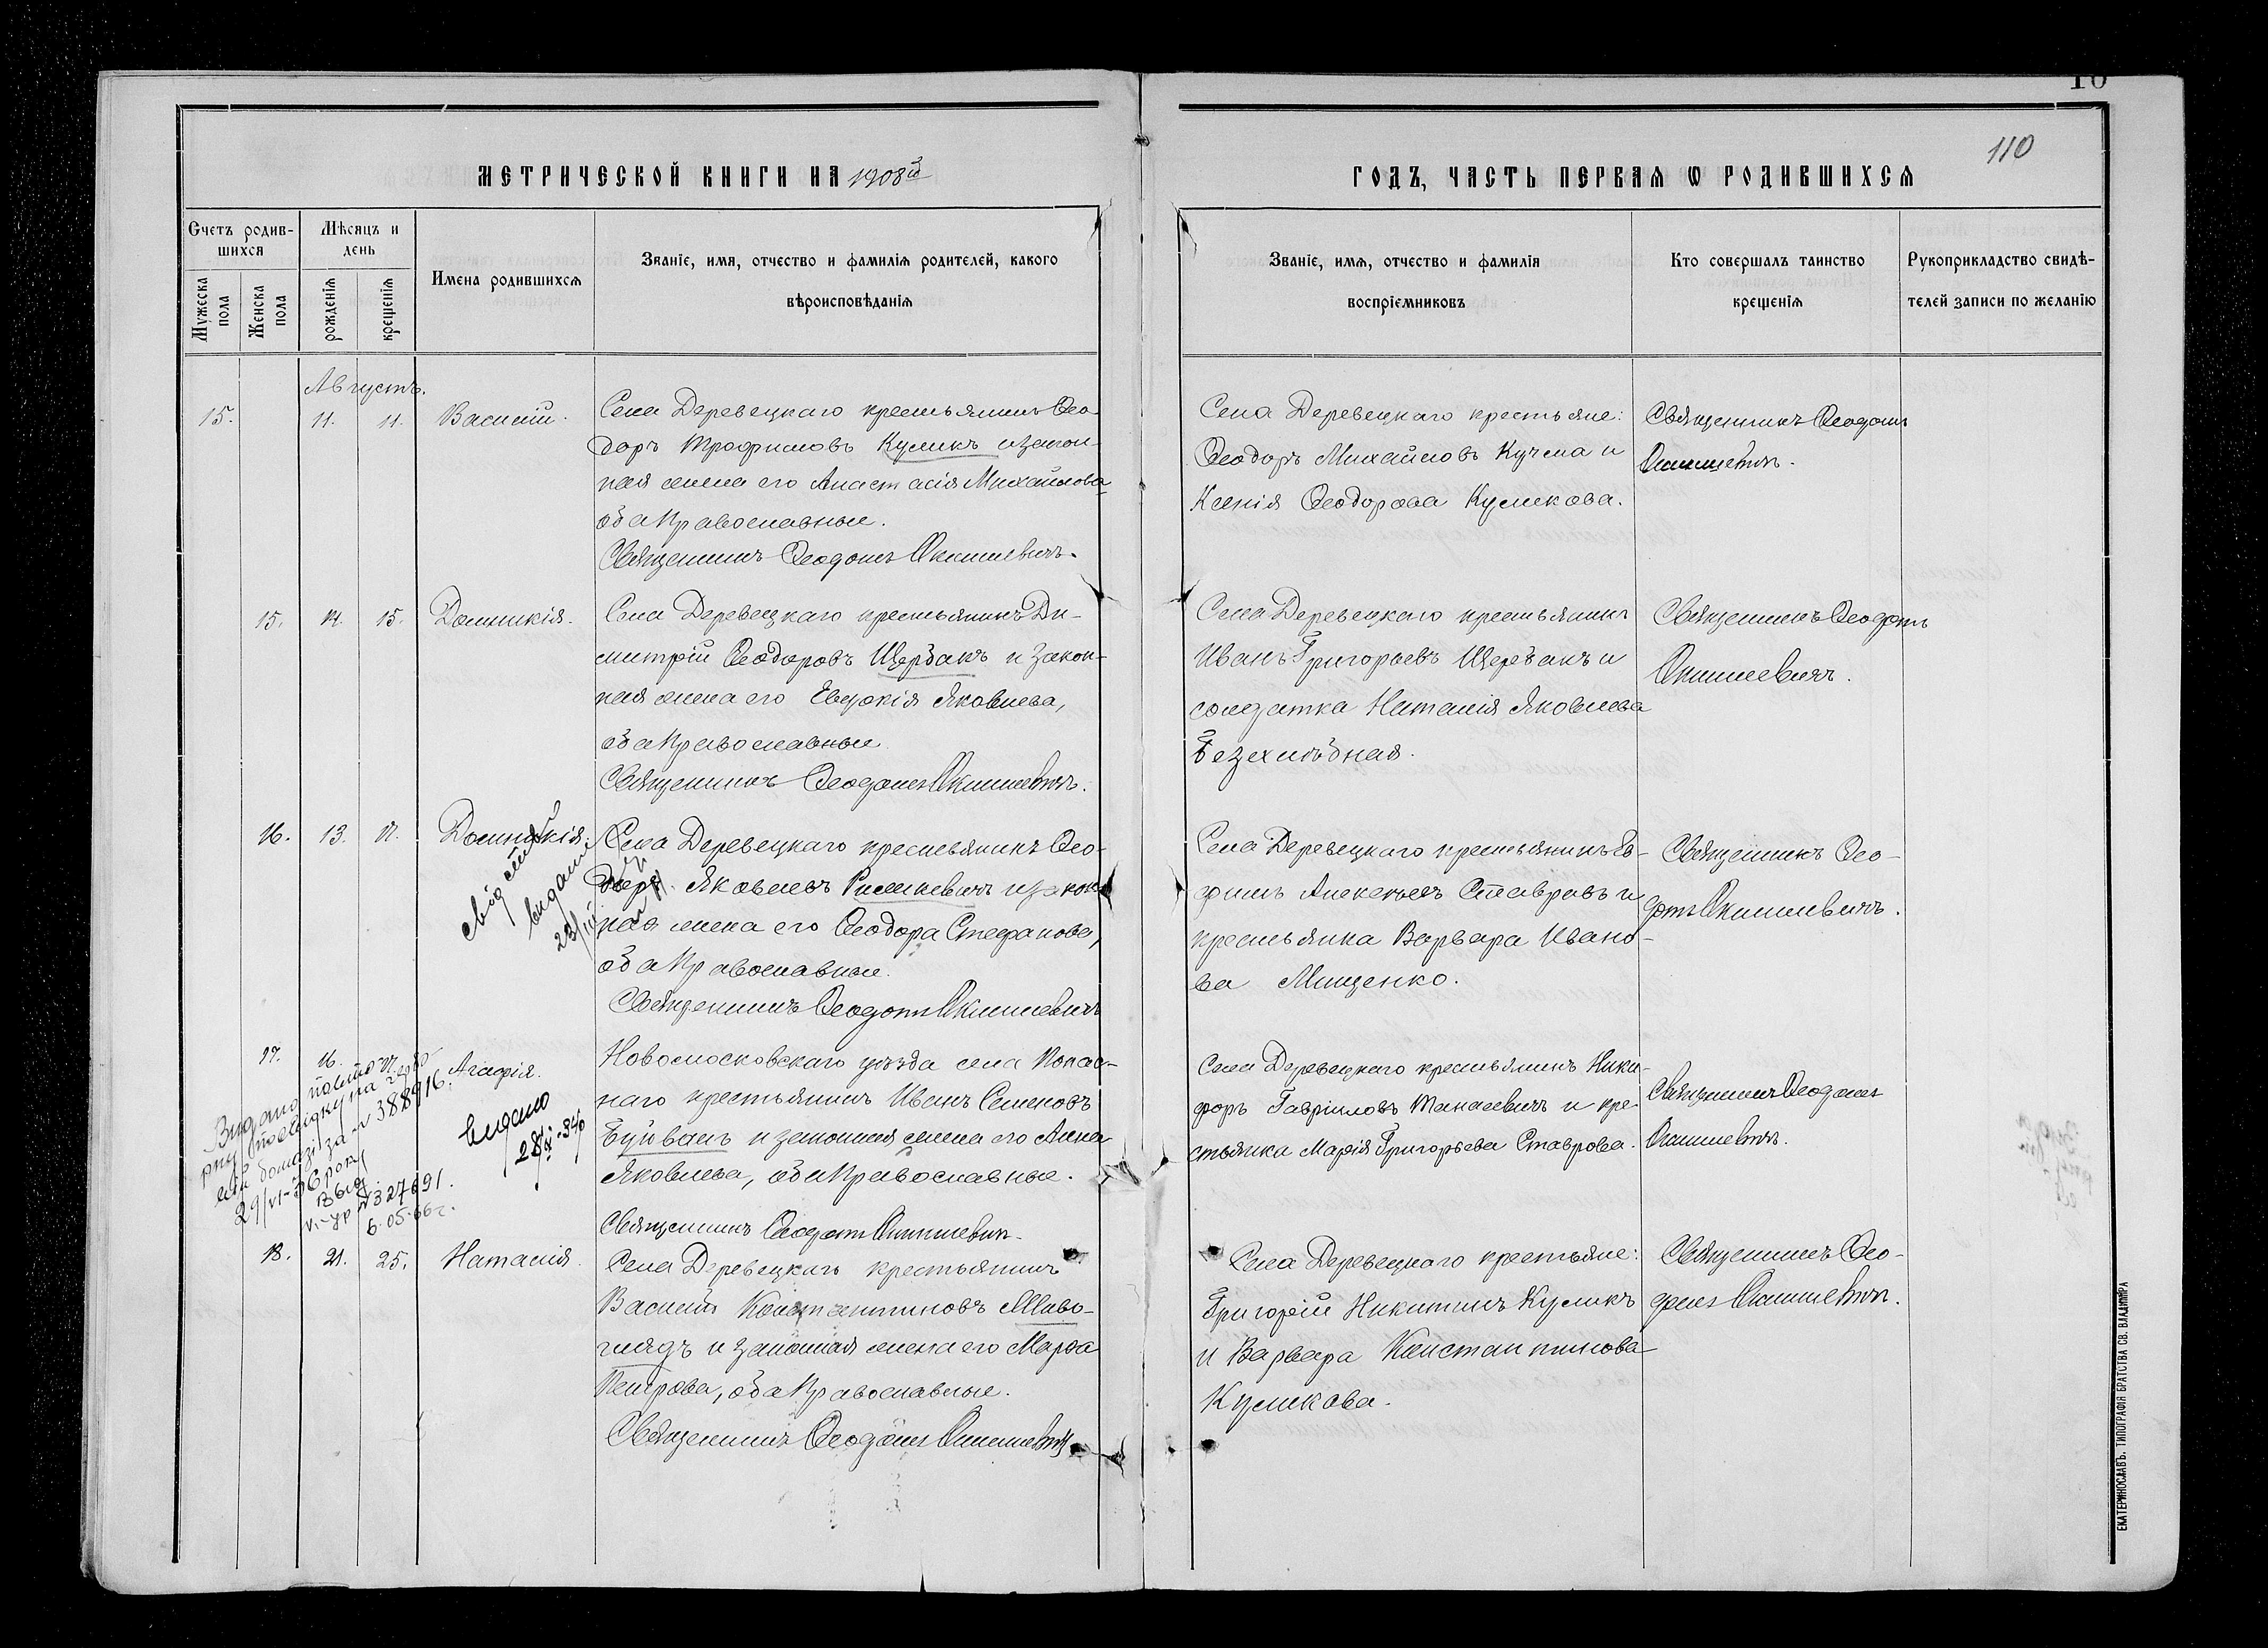 10
110
МЕТРИЧЕСКОЙ КНИГИ НА 1908й
ГОДЪ, ЧАСТЬ ПЕРВАЯ Ѡ РОДИВШИХСЯ
Счетъ родив-
шихся
Мѣсяцъ и
день
Мужеска
пола
Женска
пола
рожденія
крещенія
Имена родившихся
Званіе, имя, отчество и фамилія родителей, какого
вѣроисповѣданія
Званіе, имя, отчество и фамилія
воспріемниковъ
Кто совершалъ таинство
крещенія
Рукоприкладство свидѣ-
телей записи по желанію
Августъ.
15. 11. 11. Василій.
Села Деревецкаго крестьянинъ Ѳео-
доръ Трофимовъ Куликъ и закон-
ная жена его Анастасія Михайлова,
оба Православные.
Священникъ Ѳеодотъ Акишевичъ.
Села Деревецкаго крестьяне:
Ѳеодоръ Михайловъ Кучма и
Ксенія Ѳеодорова Куликова.
Священникъ Ѳеодотъ
Акишевичъ.
15. 12. 15. Домникія.
Села Деревецкаго крестьянинъ Ди-
митрій Ѳеодоровъ Щербакъ и закон-
ная жена его Евдокія Яковлева,
оба Православные.
Священникъ Ѳеодотъ Акишевичъ.
Села Деревецкаго крестьянинъ
Иванъ Григорьевъ Щербакъ и
солдатка Наталія Яковлева
Безхлѣбная.
Священникъ Ѳеодотъ
Акишевичъ.
16. 13. 17. Домникія.
Села Деревецкаго крестьянинъ Ѳео-
доръ Яковлевъ и закон-
ная жена его Ѳеодора Стефанова,
оба Православные.
Священникъ Ѳеодотъ Акишевичъ
видано
Села Деревецкаго крестьянинъ Ев-
фимъ Алексѣевъ Ставровъ и
крестьянка Варвара Ивано-
ва Мищенко.
Священникъ Ѳео-
дотъ Акишевичъ.
17. 16. 17. Агафія.
Новомосковскаго уѣзда села Попас-
наго крестьянинъ Иванъ Семеновъ
Буйванъ и законная жена его Анна
Яковлева, оба Православные.
Священникъ Ѳеодотъ Акишевичъ.
Видано
за № 388916.
29/VI-36 року
№ 327691.
6.05.66г.
видано
28/IX-340
Села Деревецкаго крестьянинъ Ники-
форъ Гавріиловъ Танасевичъ и кре-
стьянка Марія Григорьева Ставрова.
Священникъ Ѳеодотъ
Акишевичъ.
18. 21. 25. Наталія.
Села Деревецкаго крестьянинъ
Василій Константиновъ Миво-
глядъ и законная жена его Марѳа
Петрова, оба Православные.
Священникъ Ѳеодотъ Акишевичъ
Села Деревецкаго крестьяне:
Григорій Никитинъ Куликъ
и Варвара Константинова
Куликова.
Священникъ Ѳео-
дотъ Акишевичъ.
ЕКАТЕРИНОСЛАВЪ. ТИПОГРАФІЯ БРАТСТВА СВ. ВЛАДИМІРА